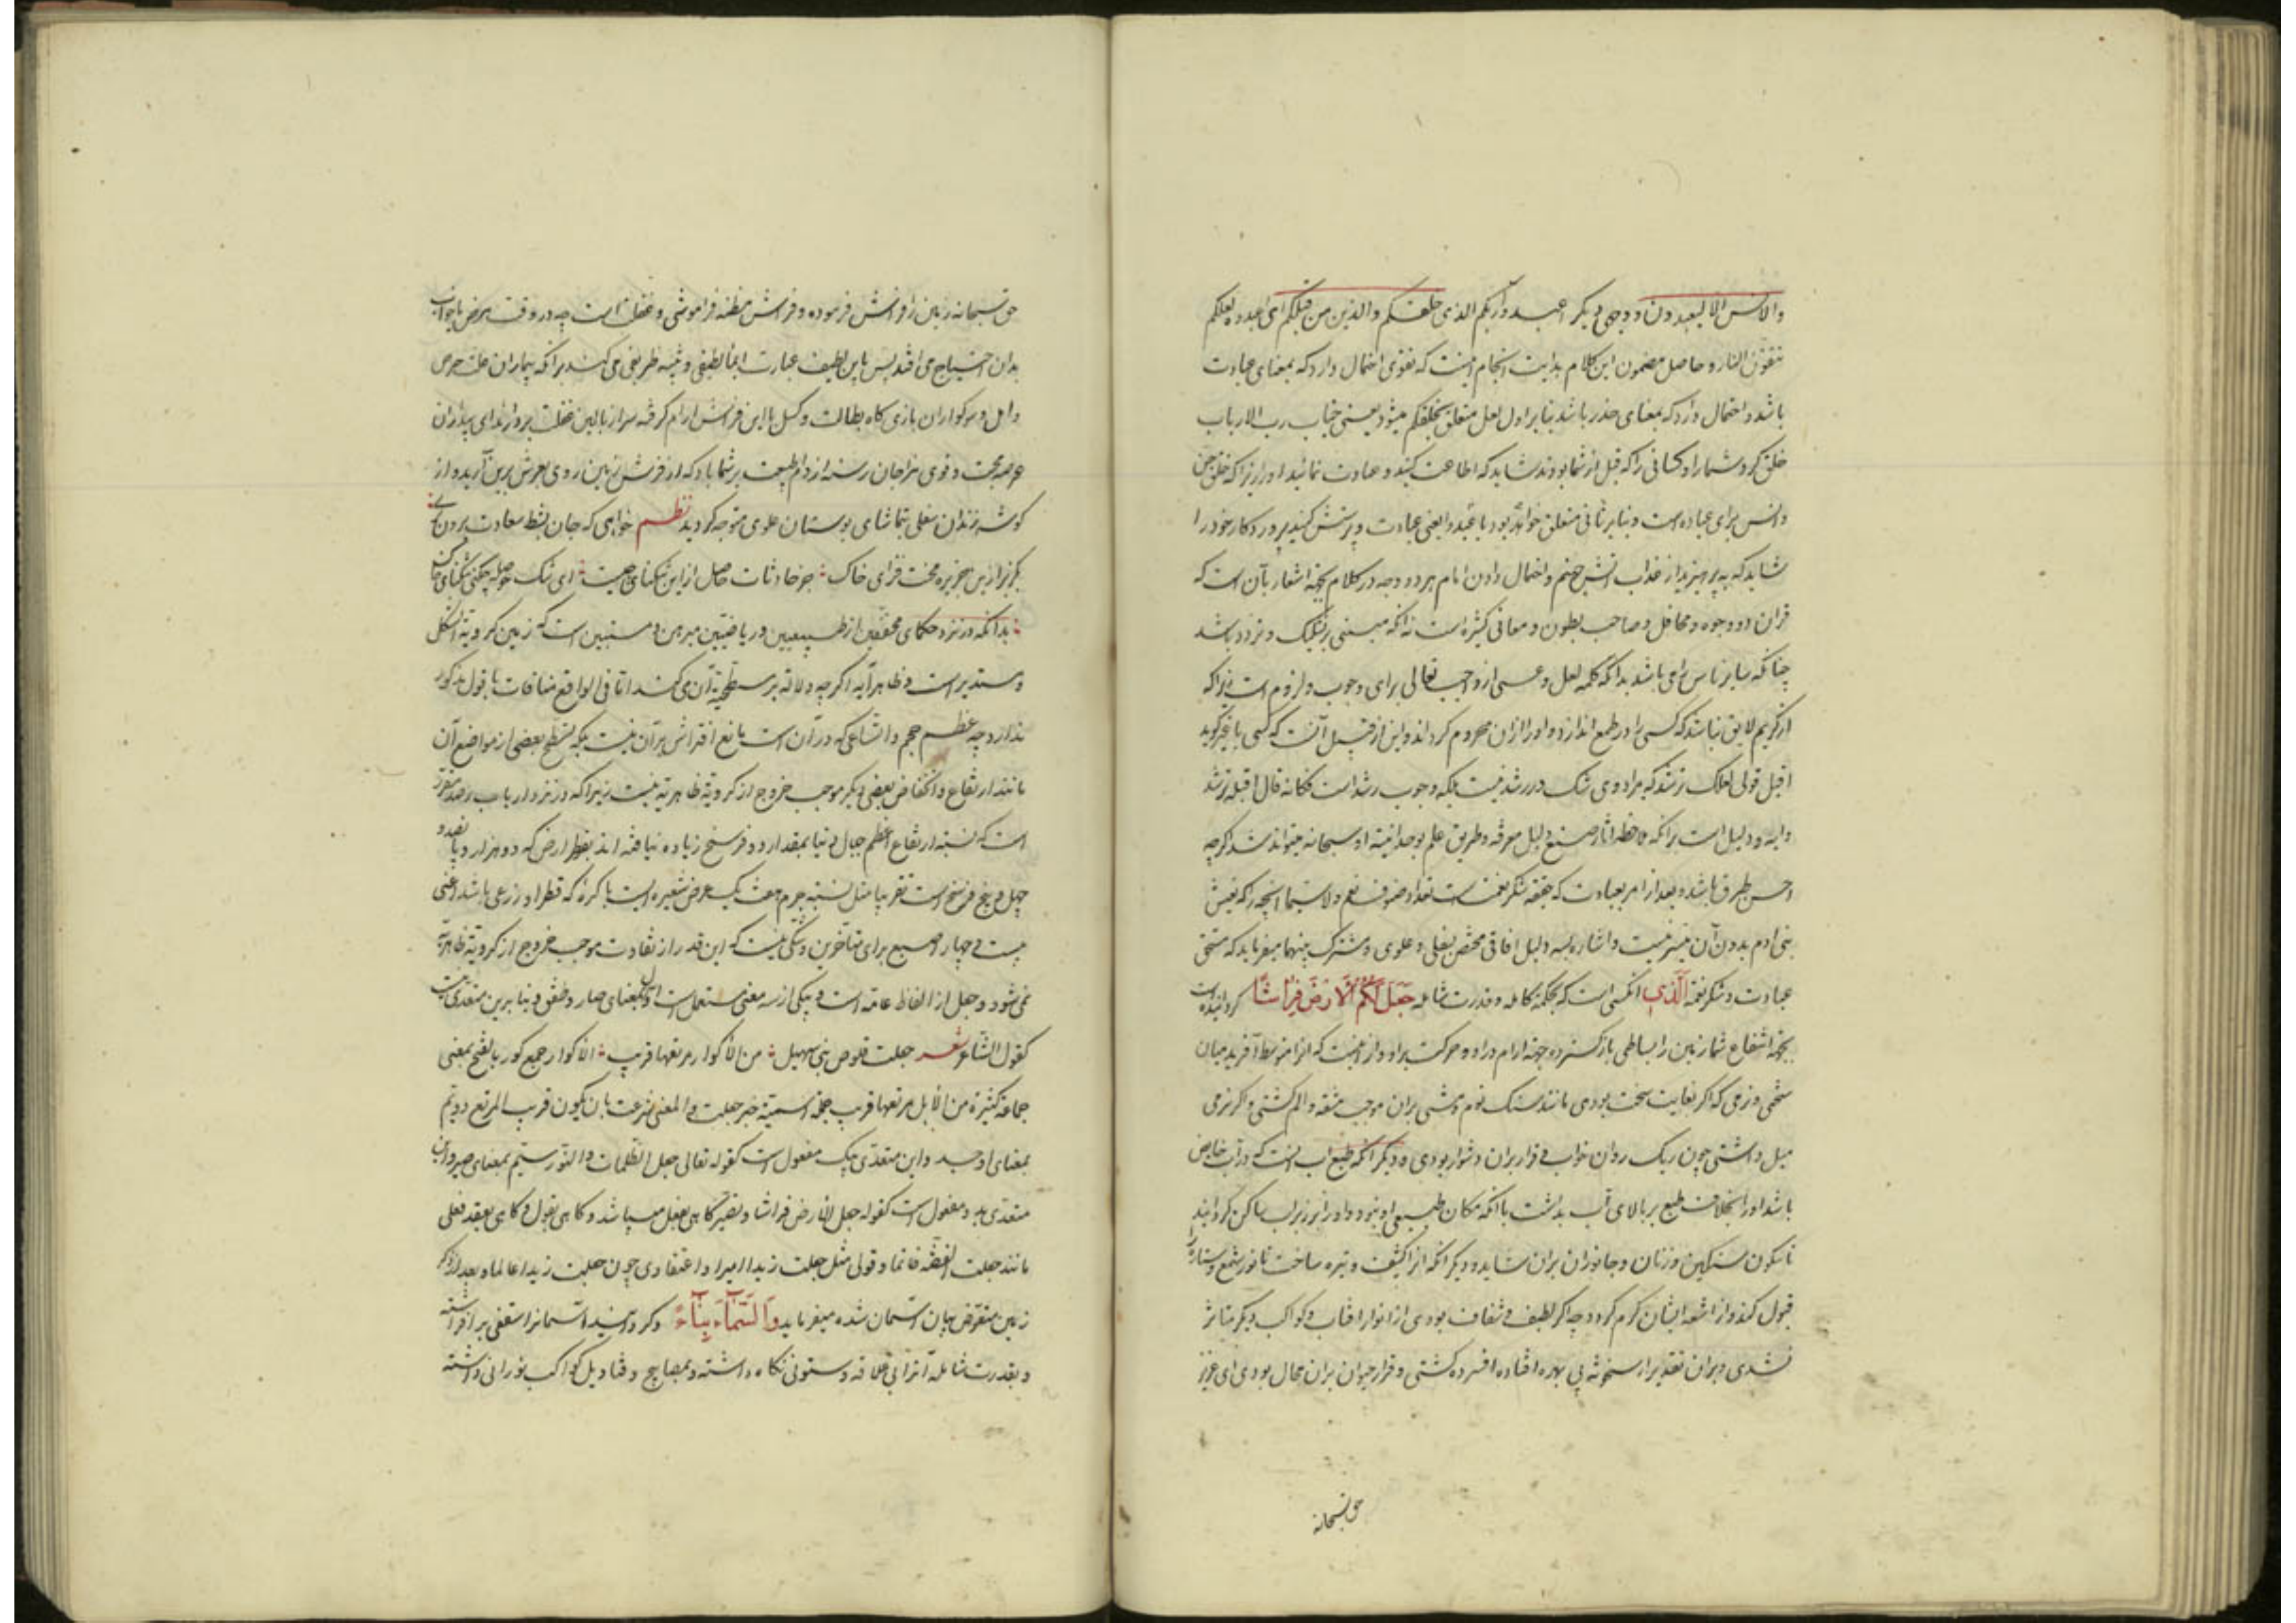 والانس الا لیعبدون و وجهی دیکر اعبدوا ربکم الذی خلقکم والذین من قبلکم ای اعبدوه لعلکم
تتقون النار و حاصل مضمون این کلام بدایت انجام اینست که تقوی احتمال دارد که بمعنای عبادت
باشد و احتمال دارد که بمعنای حذر باشد بنابر اول لعل متعلق بخلقکم میشود یعنی جناب رب الارباب
خلق کرد شما را و کسانی را که قبل از شما بودند شاید که اطاعت کنید و عبادت نمائید او را زیرا که خلق جن
و انس برای عباده است و بنابر ثانی متعلق خواهد بود با عبدوا یعنی عبادت و پرستش کنید پروردکار خود را
شاید که بپرهیزید از عذاب آتش جهنم و احتمال دادن امام هر دو وجه در کلام بجهة اشعار بآن است که
قران ذو وجوه و محامل و صاحب بطون و معانی کثیره است نه آنکه مبنی بر تشکیک و تردد باشد
چنانکه سایر ناس را می باشد بدانکه کلمه لعل و عسی از واجب تعالی برای وجوب و لزوم است زیرا که
از کریم لایق نباشد که کسی را در طمع اندازد و او را از ان محروم کرداند و این از قبیل آنست که کسی با غیر کوید
اقبل قولی لعلک ترشد که مراد وی شک در رشد نیست بلکه وجوب رشد است فکانه قال اقبله ترشد
و ایه ودلیل است برانکه ملاحظه اثار صنع دلیل معرفه و طریق علم بوحدانیة او سبحانه میتواند شد کرچه
احسن طرق باشد و بعد از امر بعبادت که حقیقه شکر نعمت است تعداد صنوف نعم ولا سیما انچه را که تعیش
بنی ادم بدون آن میسر نیست و اشاره بسه دلیل افاقی مختص بسفلی و علوی و مشترک بینهما میفرماید که مستحق
عبادت و شکر نعمة الَّذِی انکسی است که بحکمة کامله و قدرت شامله جَعَلَ لَکُمُ الْاَرْضَ فِرَاشًا کردانیده است
بجهة انتفاع شما زمین را بساطی باز کسترده و جهة ارام در او و حرکت بر او و از انجهت که انرا متوسط آفرید میان
سختی و نرمی که اکر بغایت سخت بودی مانند سنک نوم و مشی بران موجب مشقه و الم کشتی و اکر نرمی
میل داشتی چون ریک روان خواب و قرار بران دشوار بودی و دیکر انکه طبع اب انست که در تحت خاص
باشد او را بخلاف طبع بر بالای آب بداشت با انکه مکان طبیعی او نبود و او را بر زبر اب ساکن کردانید
تا سکون ساکنین و زنان و جانوران بران شاید و دیکر انکه انرا کثیف و تیره ساخت تا نور شمع و ستاره را
قبول کند و از اشعه ایشان کرم کردد چه اکر لطیف و شفاف بودی از انوار افتاب و کواکب دیکر متاثر
نشدی و بران تقدیر از سخونه بی بهره افتاده افسرده کشتی و قرار حیوان بران محال بودی ای عزیز
حق سبحانه
حق سبحانه زمین را فراش فرموده و فراش مظنه فراموشی و غفلت است چه در وقت مرض یا خواب
بدان احتیاج می افتد پس باین لطیف عبارت ایمأ لطیفی و تنبیه ظریفی می کند برانکه بیماران علت حرص
و امل و سوکواران بازی کاه بطالت و کسل باین فراش ارام کرفته سر از بالین غفلت بردارند ای بیداران
عرصه محبت و قوی مزاجان رسته از دام طبیعت بر شما باد که از فرش زمین روی بعرش برین آرید و از
کوشه زندان سفلی بتماشای بوستان علوی متوجه کردید نظم خواهی که جان بشط سعادت برون بری
بکریز ازین جزیره محنت فزای خاک جز حادثات حاصل از این تنکنای چیست ای تنک حوصله چکنی تنکنای خاک
بدانکه در نزد حکمای محققین از طبیعیین و ریاضیین مبرهن و مستبین است که زمین کرویة الشکل
و مستدیر است و ظاهر آیه اکر چه دلالة بر سطحیة آن می کند اما فی الواقع منافات با قول مذکور
ندارد چه عظم حجم و اتساعی که در آن است مانع افتراش بر آن نیست بلکه تسطح بعضی از مواضع آن
مانند ارتفاع و انخفاض بعضی دیکر موجب خروج از کرویة ظاهریة نیست زیرا که در نزد ارباب رصد مقرر
است که نسبة ارتفاع اعظم جبال دنیا بمقدار دو فرسخ زیاده نیافته اند بقطر ارض که دو هزار و پانصد و
چهل و پنج فرسخ است تقریبا مثل نسبة جرم هفت یک عرض شعیره است با کره که قطر او ذرعی باشد اعنی
بیست و چهار اصبع برای متاخرین و شکی نیست که این قدر از تفاوت موجب خروج از کرویة ظاهریة
نمی شود و جعل از الفاظ عامه است و بیکی از سه معنی مستعملست اول بمعنای صار و طفق و بنابرین متعدی نیست
کقول الشاعر شعر جعلت قلوص بنی سهیل من الاکوار مرتعها قریب الاکوار جمع کور بالفتح بمعنی
جماعة کثیرة من الابل مرتعها قریب جملة اسمیة خبر جعلت و المعنی شرعت بان یکون قریب المرتع دویم
بمعنای اوجد و این متعدی بیک مفعول است کقوله تعالی جعل الظلمات و النور سیم بمعنای صیر و این
متعدی بدو مفعول است کقوله جعل الارض فراشا و تصییر کاهی بفعل میباشد و کاهی بقول و کاهی بعقد فعلی
مانند جعلت الفضّه خاتما و قولی مثل جعلت زیدا امیرا و اعتقادی چون جعلت زیدا عالما و بعد از ذکر
زمین متعرض بیان آسمان شده میفرماید وَالسَّمَآءَ بِنَآءً و کردانید آسمانرا سقفی برافراشته
و بقدرت شامله آنرا بی علاقه و ستونی نکاه داشته و بمصابیح و قنادیل کواکب نورانی داشته